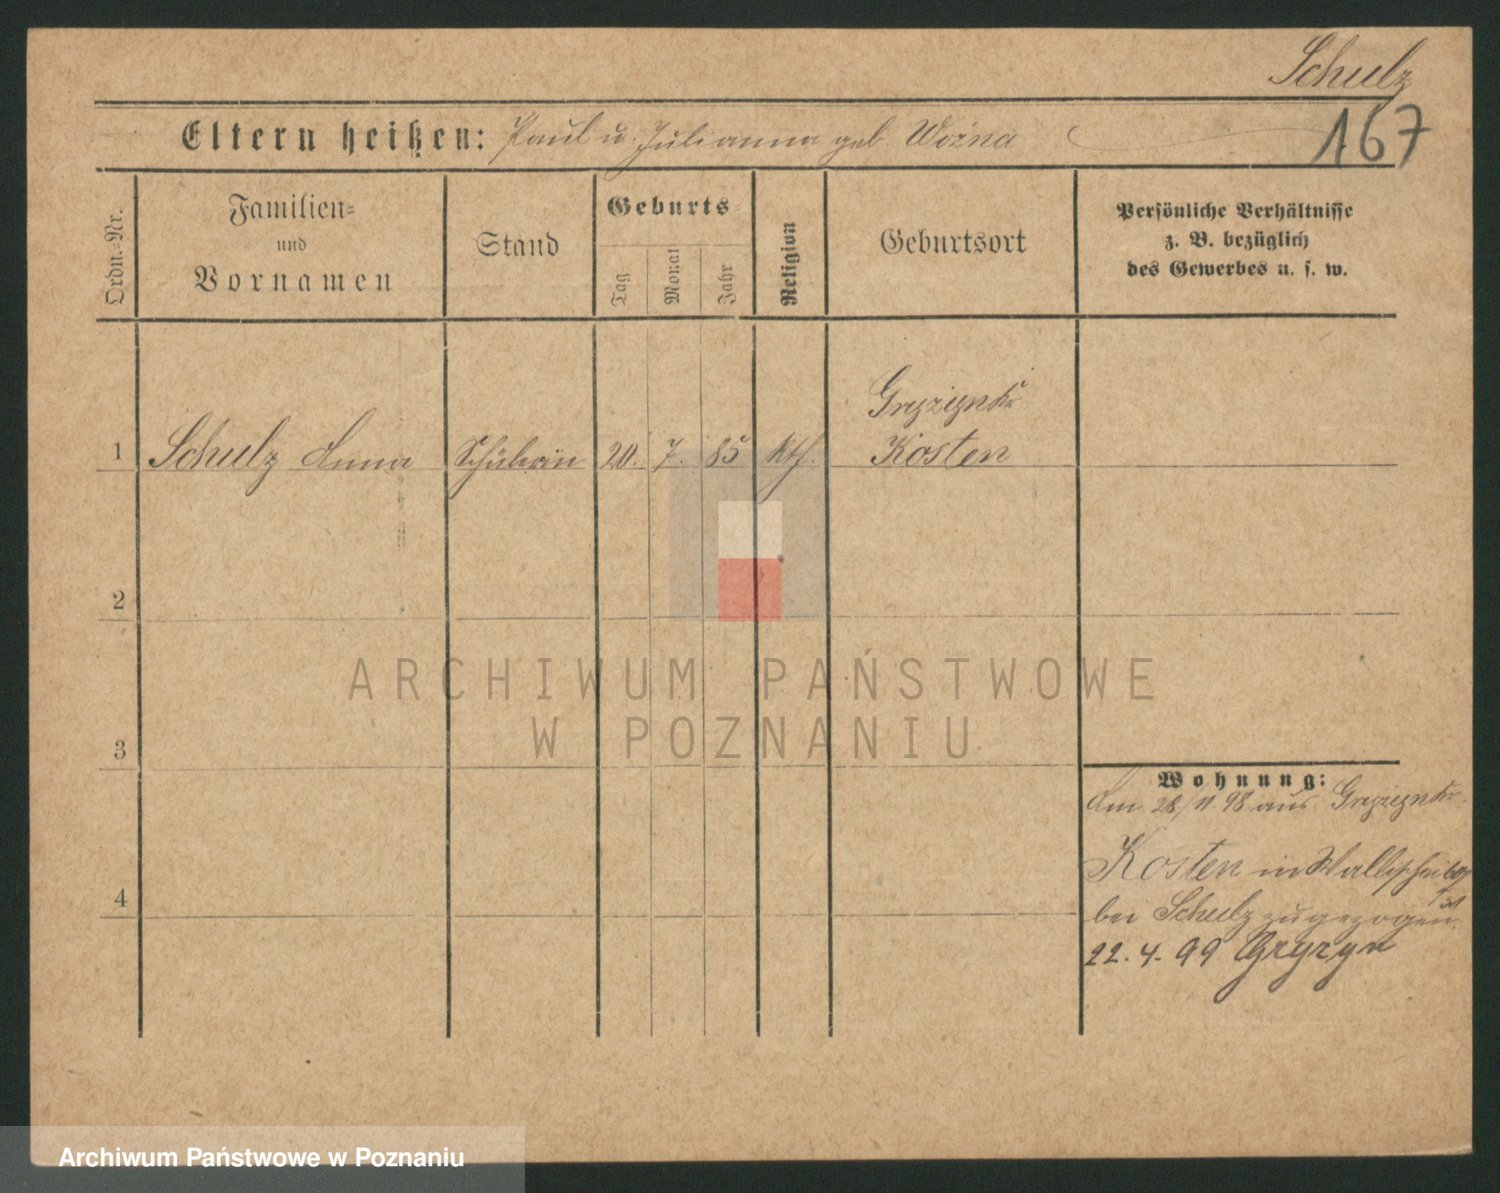 Schulz
167
Eltern heißen: Paul u. Julianna geb. Woźna
Ordn.-Nr.
Familien-
und
Vornamen
Stand
Geburts-
Tag
Monat
Jahr
Religion
Geburtsort
Persönliche Verhältnisse
z. B. bezüglich
des Gewerbes u. s. w.
Gryzyn Kr
1 Schulz Anna Schülerin 20. 7. 85 kth. Kosten
2
3
4
Wohnung:
Am 28/11. 98 aus Gryzyn Kr.
Kosten in Wallischei
bei Schulz zugezogen.
22. 4. 99 Gryzyn
ARCHIWUM PAŃSTWOWE
W POZNANIU
Archiwum Państwowe w Poznaniu